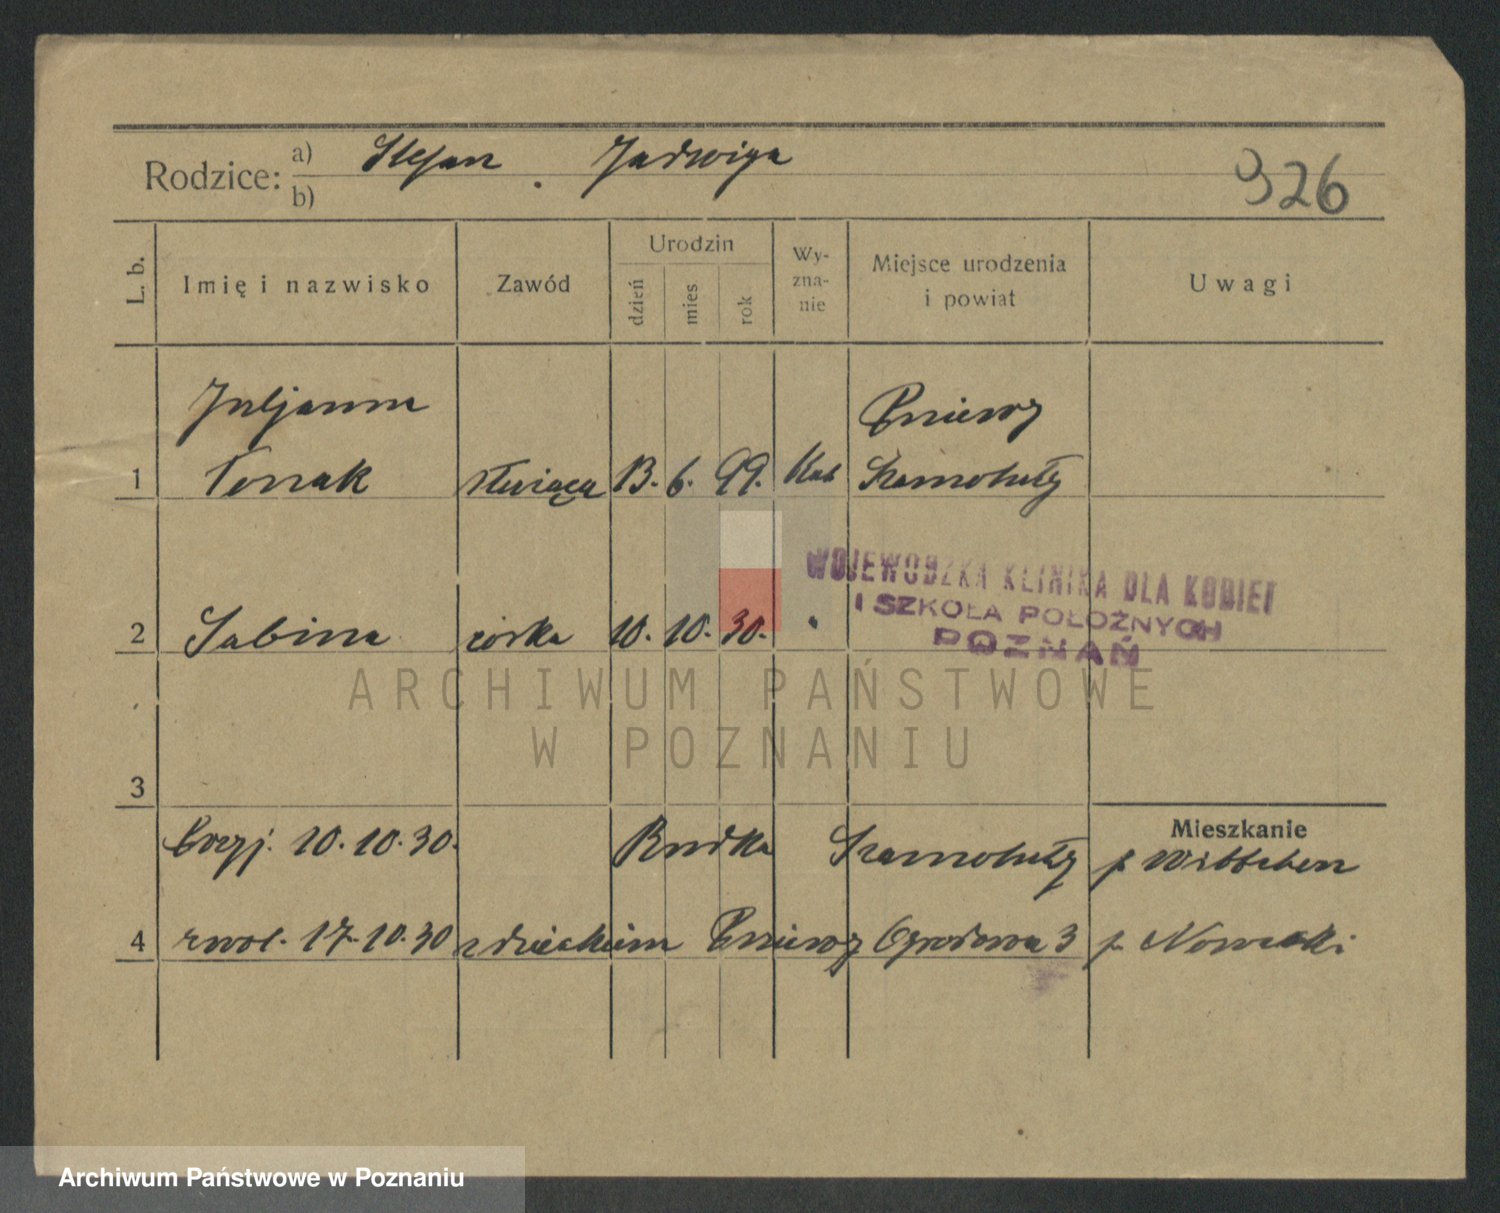 Rodzice: a) Stefan . Jadwiga
b)
326
L. b.
Imię i nazwisko
Zawód
Urodzin
dzień
mies
rok
Wy-
zna-
nie
Miejsce urodzenia
i powiat
Uwagi
Juljanna
Pniewy
1
służąca 13. 6. 99. Kat Szamotuły
WOJEWÓDZKA KLINIKA DLA KOBIET
I SZKOŁA POŁOŻNYCH
POZNAŃ
2 Sabina córka 10. 10. 30. "
ARCHIWUM PAŃSTWOWE
W POZNANIU
3
Mieszkanie
10.10.30. Rudka Szamotuły p
4 zwol. 17.10.30 z dzieckiem Pniewy Ogrodowa 3 p Nowacki
Archiwum Państwowe w Poznaniu